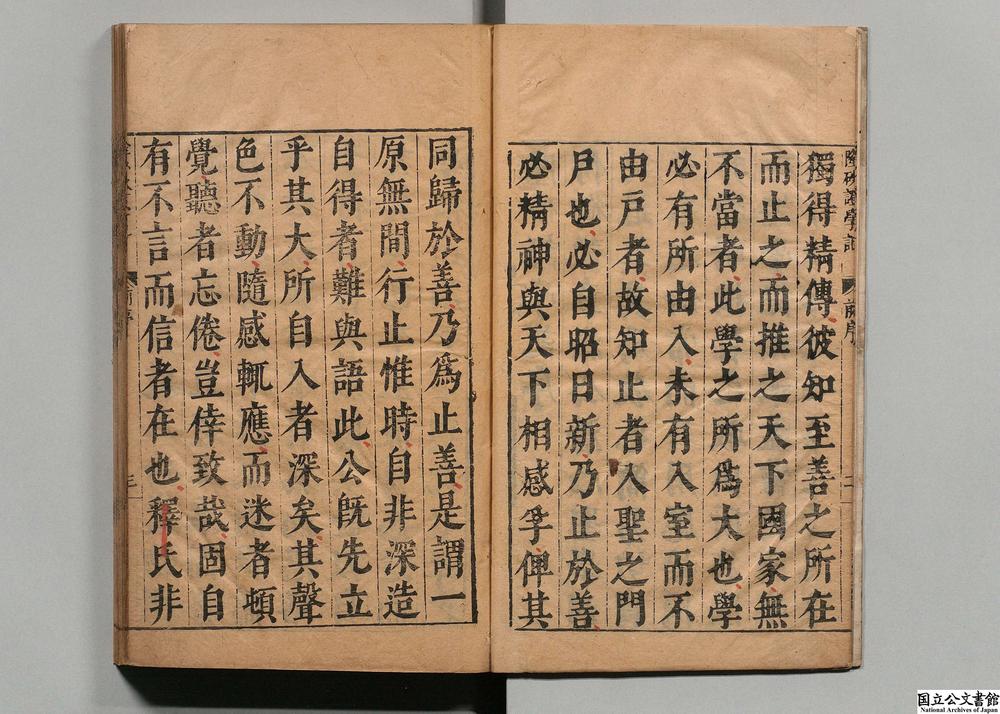 獨得精傳彼知至善之所在
而止之而推之天下國家無
不當者此學之所爲大也學
必有所由入未有入室而不
由戸者故知止者入聖之門
戸也必自昭日新乃止於善
必精神與天下相感孚俾其
同歸於善乃爲止善是謂一
原無間行止惟時自非深造
自得者難與語此公旣先立
乎其大所自入者深矣其聲
色不動隨感輒應而迷者頓
覺聽者忘倦豈倖致哉固自
有不言而信者在也釋氏非
国立公文書館
National Archives of Japan